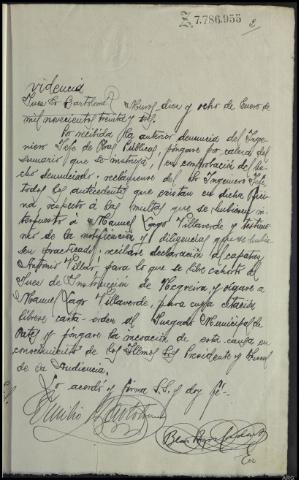 Z.7.786.955
2
Providencia
Juez Sr Bartolomé Muros diez y ocho de Enero de
mil novecientos treinta y seis.
Por recibida la anterior denuncia del Inge-
niero Jefe de Obras Públicas, póngase por cabeza del
sumario que se instruya, en comprobación del he-
cho denunciado; reclámense del Sr Ingeniero Jefe
todos los antecedentes que existan en dicha Ofici-
na, respecto a las multas que se hubieren im-
puesto a Manuel Lago Villaverde y testimo-
nio de la notificación y diligencias que se hubie-
sen practicado; recíbase declaración al capataz
Antonio Villar, para lo que se libre exhorto al
Juez de Instrucción de Negreira y óigase a
Manuel Lago Villaverde, para cuya citación
líbrese carta-orden al Juzgado Municipal de
Outes y póngase la incoación de esta causa en
conocimiento de los Iltmos Srs Presidente y Fiscal
de la Audiencia.
Lo acordó y firma S.S. y doy fe.-
Emilio Bartolomé